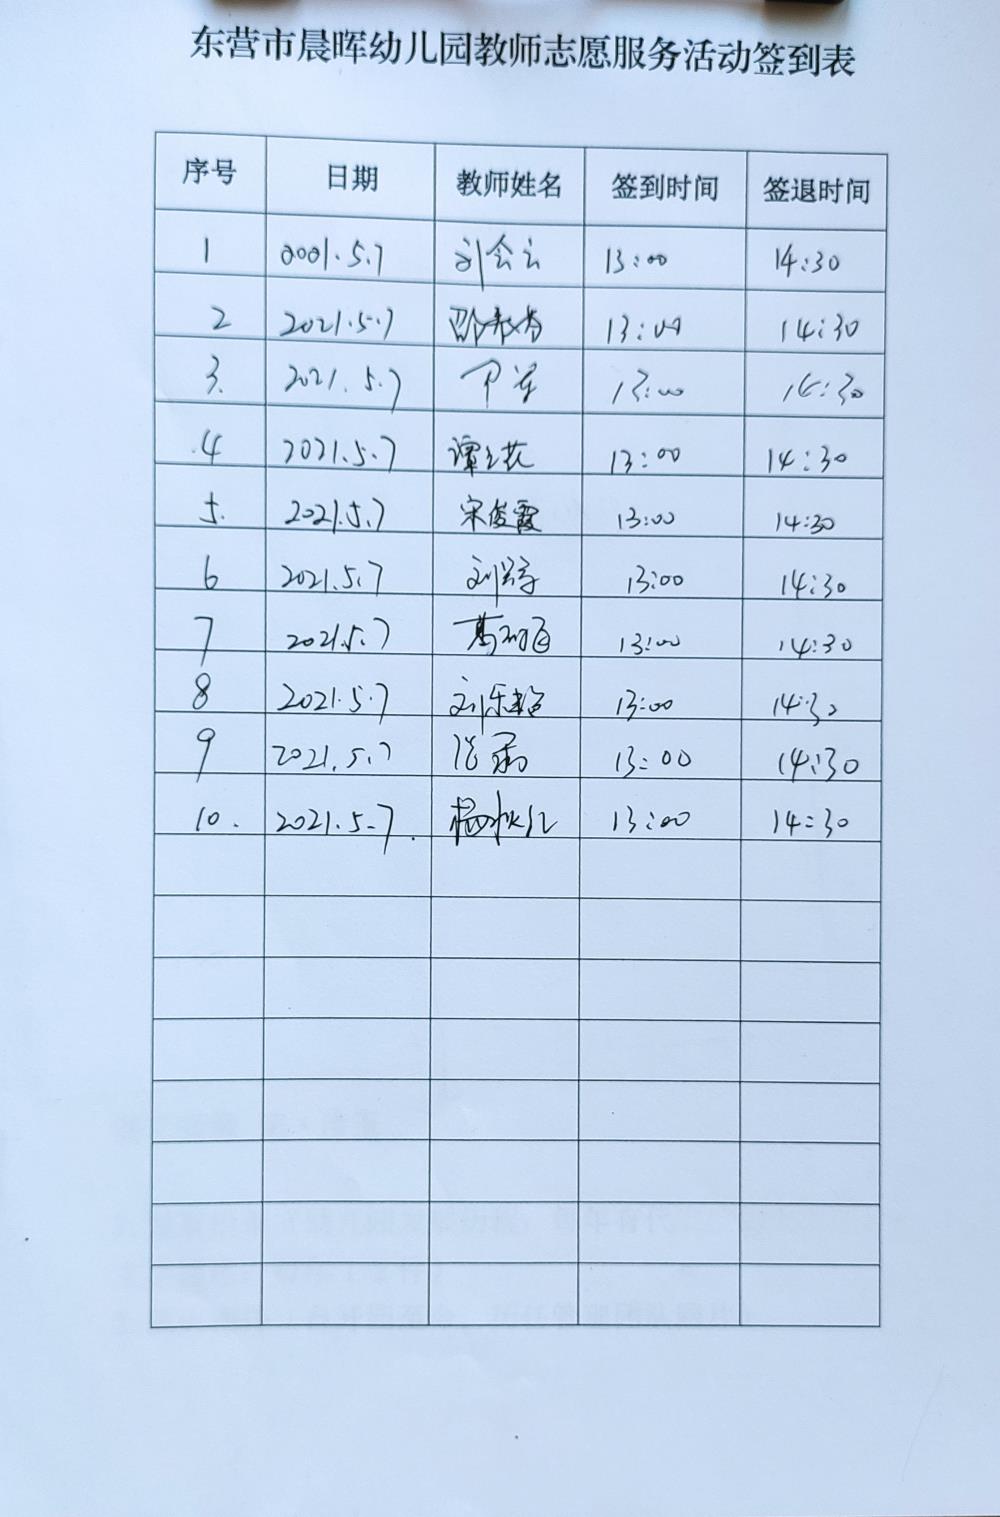 东营市晨晖幼儿园教师志愿服务活动签到表
序号 日期 教师姓名 签到时间 签退时间
1 2021.5.7 刘会云 13:00 14:30
2 2021.5.7 13:00 14:30
3. 2021.5.7 13:00 14:30
4 2021.5.7 谭 花 13:00 14:30
5. 2021.5.7 宋俊霞 13:00 14:30
6 2021.5.7 刘 13:00 14:30
7 2021.5.7 葛 13:00 14:30
8 2021.5.7 刘乐 13:00 14:30
9 2021.5.7 13:00 14:30
10. 2021.5.7. 杨秋红 13:00 14:30